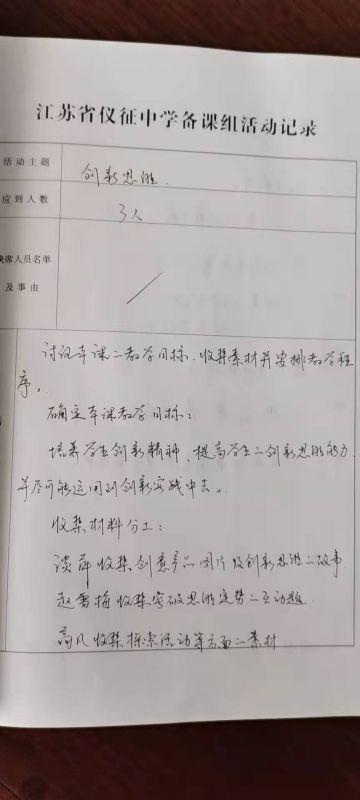 江苏省仪征中学备课组活动记录
活动主题
创新思维
应到人数
3人
缺席人员名单
及事由
讨议本课之教学目标、收集素材并安排教学程
序。
确定本课教学目标：
培养学生创新精神，提高学生之创新思维能力
并尽可能运用到创新实践中去。
收集材料分工：
谈萍收集创意产品图片及创新思维之故事
赵雪梅收集突破思维定势之互动题
高凡收集探索活动等方面之素材